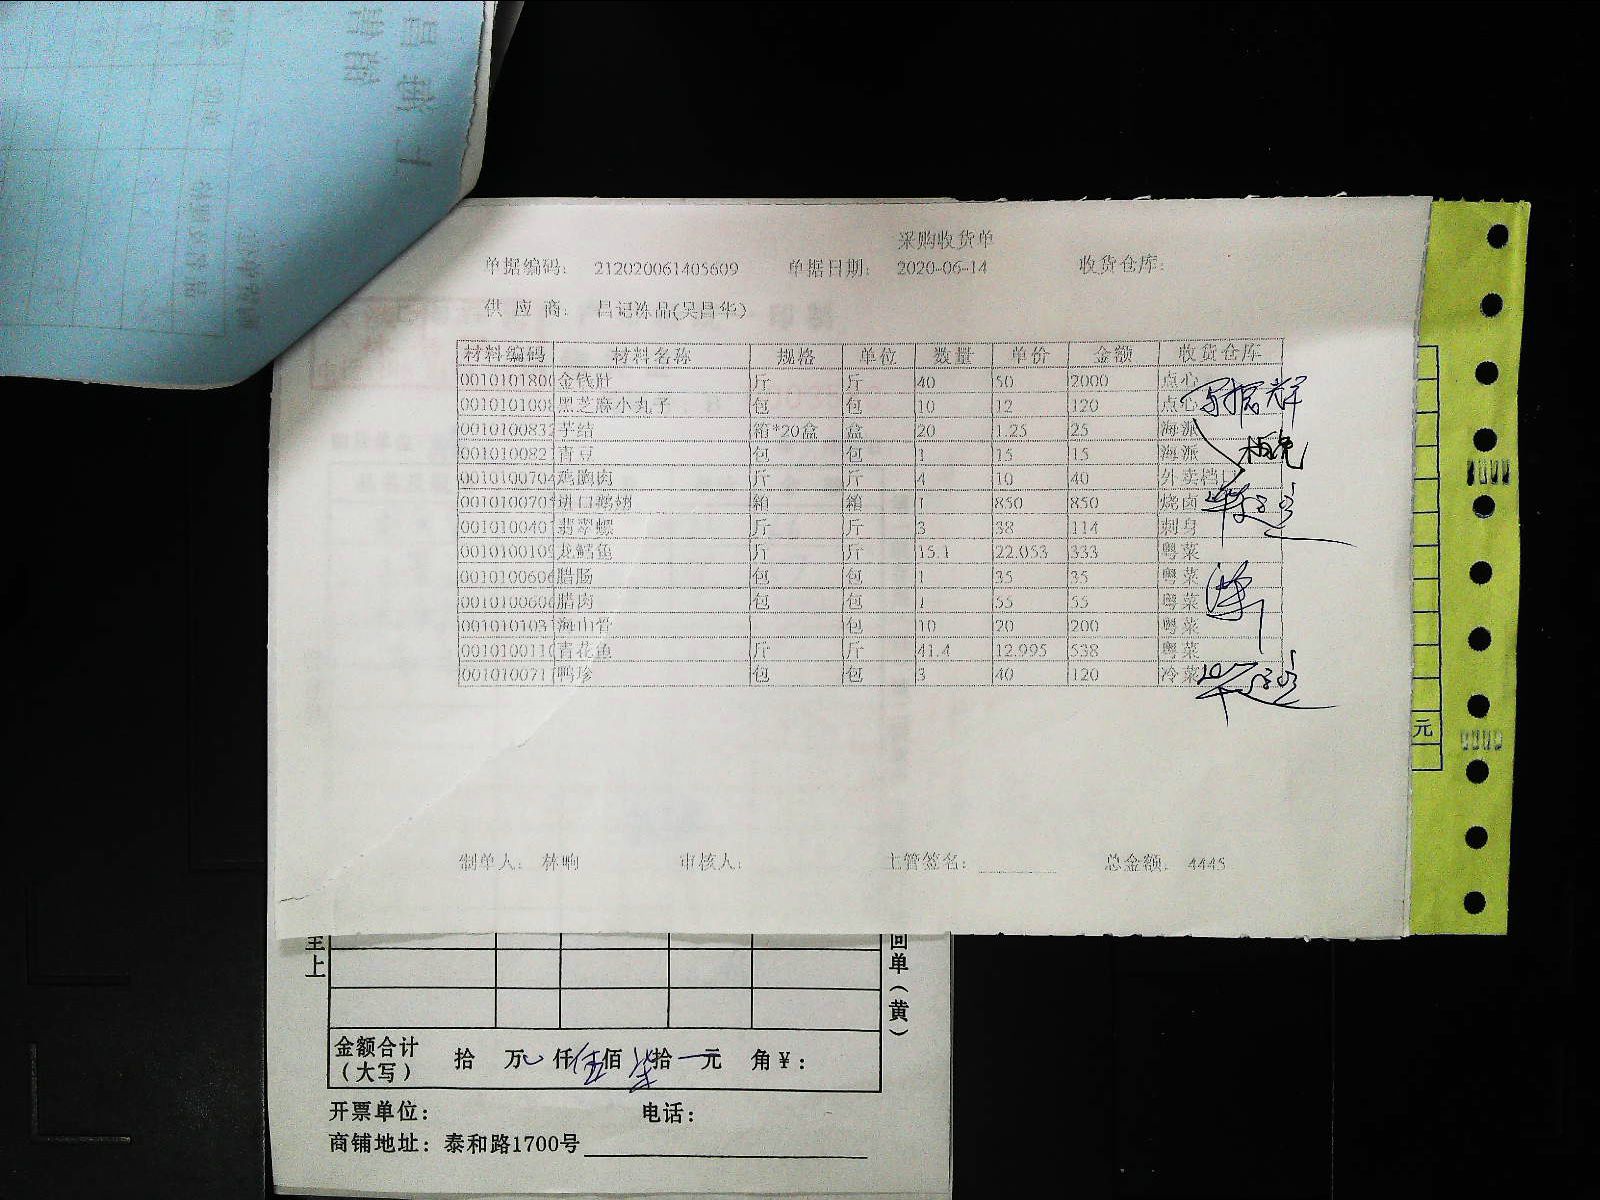 采购收货单
单据编码： 212020061405609 单据日期： 2020-06-14 收货仓库：
供 应 商： 昌记冻品(吴昌华)
材料编码 材料名称 规格 单位 数量 单价 金额 收货仓库
0010101800 金钱肚 斤 斤 40 50 2000 点心
0010101008 黑芝麻小丸子 包 包 10 12 120 点心
0010100832 芋结 箱*20盒 盒 20 1.25 25 海派
001010082 青豆 包 包 1 15 15 海派
0010100704 鸡胸肉 斤 斤 4 10 40 外卖档口
001010070 进口鹅翅 箱 箱 1 850 850 烧卤
001010040 翡翠螺 斤 斤 3 38 114 刺身
001010010 龙鳕鱼 斤 斤 15.1 22.053 333 粤菜
001010060 腊肠 包 包 1 35 35 粤菜
001010060 腊肉 包 包 1 55 55 粤菜
001010103 海山骨 包 10 20 200 粤菜
001010011 青花鱼 斤 斤 41.4 12.995 538 粤菜
001010071 鸭珍 包 包 3 40 120 冷菜
制单人： 林响 审核人： 主管签名： 总金额： 4445
元
至上
回单（黄）
金额合计（大写） 拾 万 仟 伍 佰 柒 拾 一 元 角 ¥：
开票单位： 电话：
商铺地址：泰和路1700号